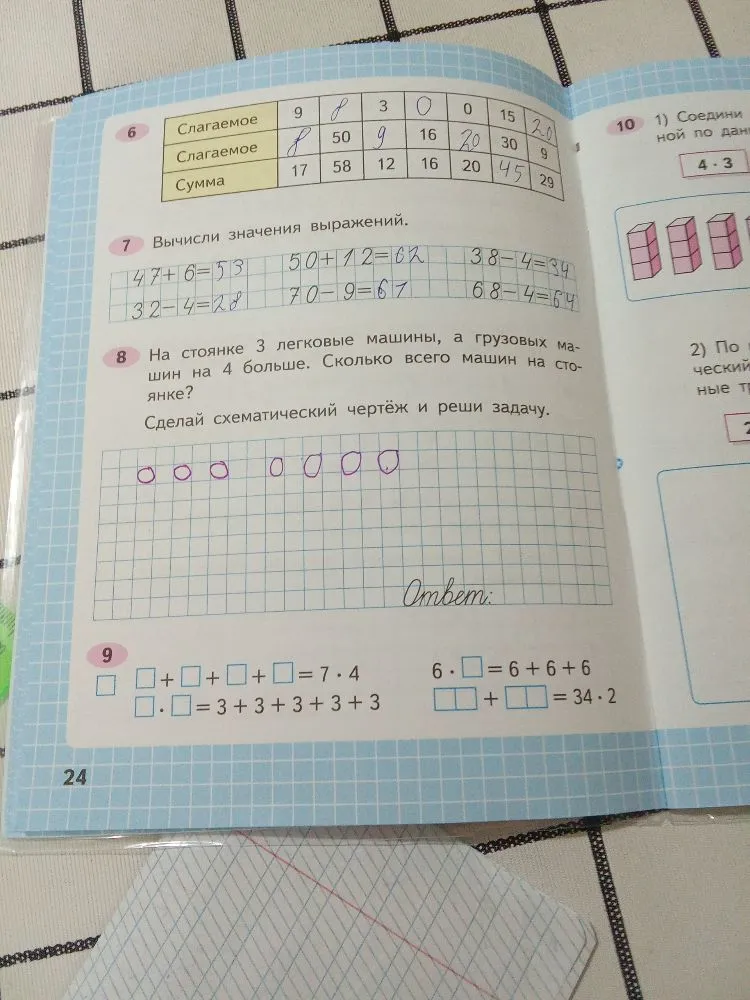 6
Слагаемое 9 8 3 0 0 15 20
Слагаемое 8 50 9 16 20 30 9
Сумма 17 58 12 16 20 45 29
7 Вычисли значения выражений.
47+6=53 50+12=62 38-4=34
32-4=28 70-9=61 68-4=64
8 На стоянке 3 легковые машины, а грузовых ма-
шин на 4 больше. Сколько всего машин на сто-
янке?
Сделай схематический чертёж и реши задачу.
Ответ:
9
□+□+□+□=7·4 6·□=6+6+6
□·□=3+3+3+3+3 □□+□□=34·2
24
10 1) Соедини
ной по дан
4·3
2) По
ческий
ные т
2